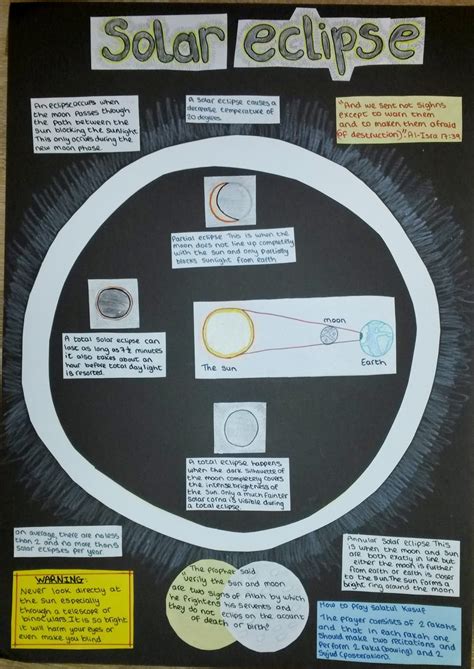 Solar eclipse
An eclipse occurs when
the moon passes through
the path between the
sun blocking the sunlight
This only occurs during the
new moon phase.
A solar eclipse causes a
decrease temperature of
20 degrees
"And we sent not sighns
except to warn them
and to maken them afraid
of destruction)" Al-Isra 17:39
Partial eclipse This is when the
moon does not line up completely
with the sun and only partially
blocks sunlight from earth
A total solar eclipse can
last as long as 7½ minutes
it also takes about an
hour before total daylight
is restored.
The sun
moon
Earth
A total eclipse happens
when the dark silhouette of
the moon completely covers
the intense brightness of
the Sun. Only a much fainter
solar corna is visible during
a total eclipse.
on average, there are no less
than 2 and no more than 5
solar eclipses per year.
Annular Solar eclipse This
is when the moon and sun
are both exatly in line but
either the moon is further
from earth or earth is closer
to the sun. The sun forms a
bright ring around the moon
WARNING:
Never look directly at
the sun especially
through a telescope or
binoculars. It is so bright
it will harm your eyes or
even make you blind
The prophet said
Verily the sun and moon
are two signs of Allah by which
he frightens his servents and
they do not eclips on the account
of death or birth"
How to pray Salatul Kusuf
The prayer consists of 2 rakahs
and that in each rakah one
should make two recitations and
perform 2 ruku (bowing) and 2
Sujud (posteration).